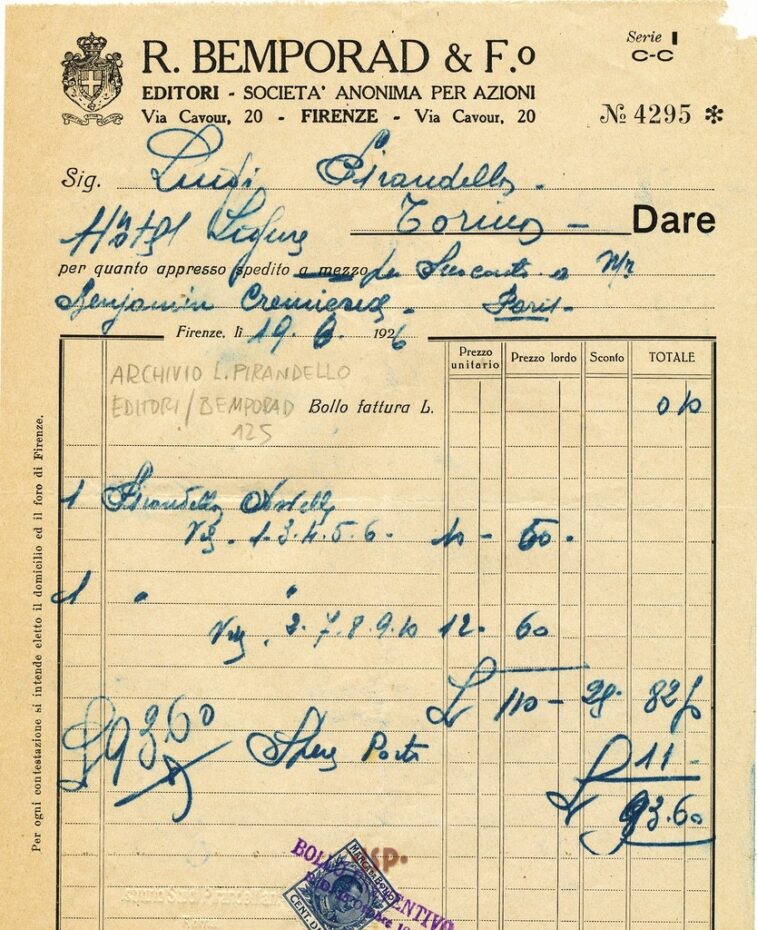 R. BEMPORAD & F.º
Serie I
C-C
EDITORI - SOCIETA' ANONIMA PER AZIONI
Via Cavour, 20 - FIRENZE - Via Cavour, 20
№ 4295 *
Sig. Luigi Pirandello.
Hôtel Ligure Torino - Dare
per quanto appresso spedito a mezzo per Suo conto a Mr
Benjamin Cremieux - Paris -
Firenze, li 19. 6. 1926
Prezzo unitario Prezzo lordo Sconto TOTALE
ARCHIVIO L. PIRANDELLO
EDITORI/BEMPORAD
125
Bollo fattura L. 0 10
1 Pirandello Novelle
Vol. 1.3.4.5.6. 10 - 50.
1 " "
Vol. 2.7.8.9.10 12. 60
L 110 - 28 82,50
L 93.60 Spese Posta L 11 -
L 93.60
Per ogni contestazione si intende eletto il domicilio ed il foro di Firenze.
SP.
MARCA DA BOLLO